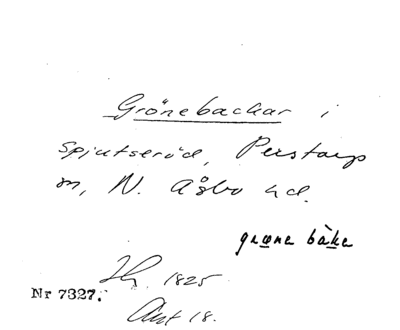 Grönebackar i
Spjutseröd, Perstorp
sn, N. Åsbo hd.
grøna bàka
Hy. 1825
Nr 7327.
Akt 18.